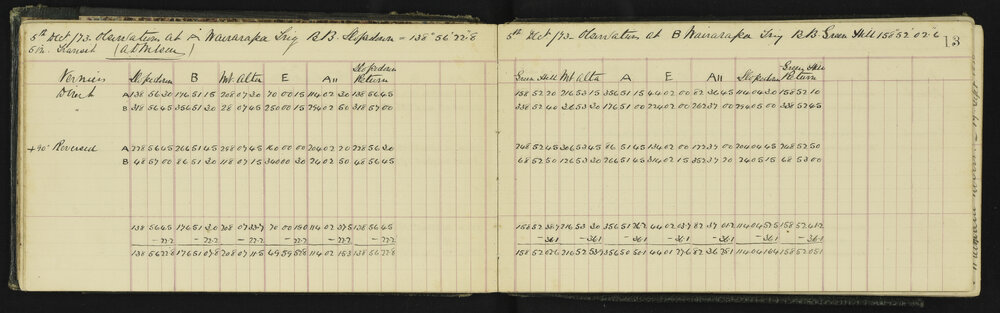 5th Oct /73. Observations at A Wairarapa Trig R.B. = 138° 56' 22"8
5 in. Transit
Vernier B Mt. Alta E A11 Return
Direct A 138 56 30 176 51 15 208 07 30 70 00 15 114 02 30 138 56 45
" B 318 56 45 356 51 30 28 07 45 250 00 15 294 02 50 318 57 00
+90° Reversed A 228 56 45 266 51 45 298 07 45 160 00 00 204 02 20 228 56 30
B 48 57 00 86 51 30 118 07 15 340 00 30 24 02 50 48 56 45
138 56 45 176 51 30 208 07 33.7 70 00 15.0 114 02 37.5 138 56 45
- 22.2 - 22.2 - 22.2 - 22.2 - 22.2 - 22.2
138 56 22.8 176 51 07.8 208 07 11.5 69 59 52.8 114 02 15.3 138 56 22.8
5th Oct /73 Observations at B Wairarapa Trig R.B. Green Hill 158 52 02.6
13
Green Hill Mt Alta A E A11 Green Hill Return
158 52 20 216 53 15 356 51 15 44 02 00 82 36 45 114 04 30 158 52 10
338 52 40 36 53 30 176 51 00 224 02 00 262 37 00 294 05 00 338 52 45
248 52 45 306 53 45 86 51 45 134 02 00 172 37 00 204 04 45 248 52 50
68 52 50 126 53 30 266 51 45 314 02 15 352 37 20 24 05 15 68 53 00
158 52 38.7 216 53 30 356 51 26.2 44 02 03.7 82 37 01.2 114 04 52.5 158 52 41.2
- 36.1 - 36.1 - 36.1 - 36.1 - 36.1 - 36.1
158 52 02.6 216 52 53.9 356 50 50.1 44 01 27.6 82 36 25.1 114 04 16.4 158 52 05.1